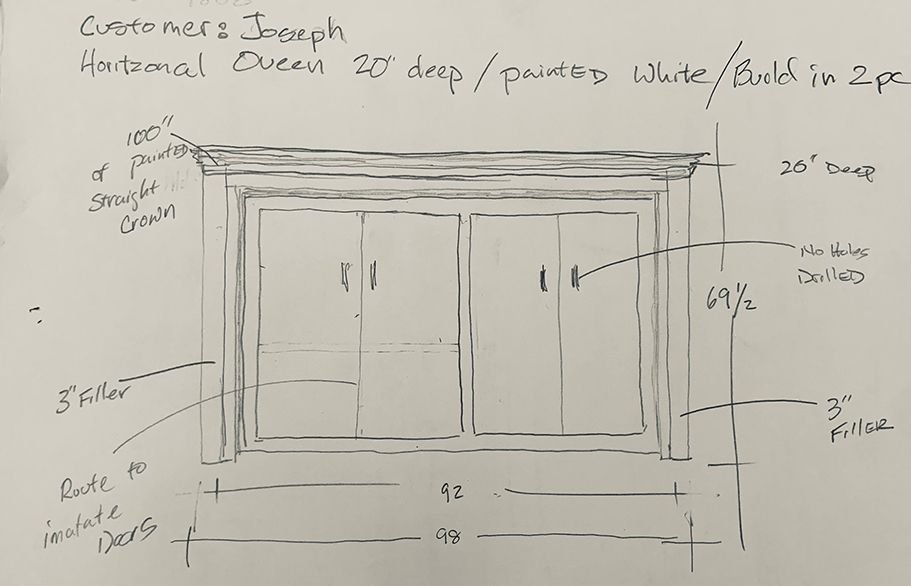 Customer: Joseph
Horitzonal Queen 20" deep / painted white / Build in 2 pc
100"
of painted
straight
crown
20" Deep
No Holes
Drilled
69 1/2
3" Filler
3"
Filler
Route to
imatate
Doors
92
98